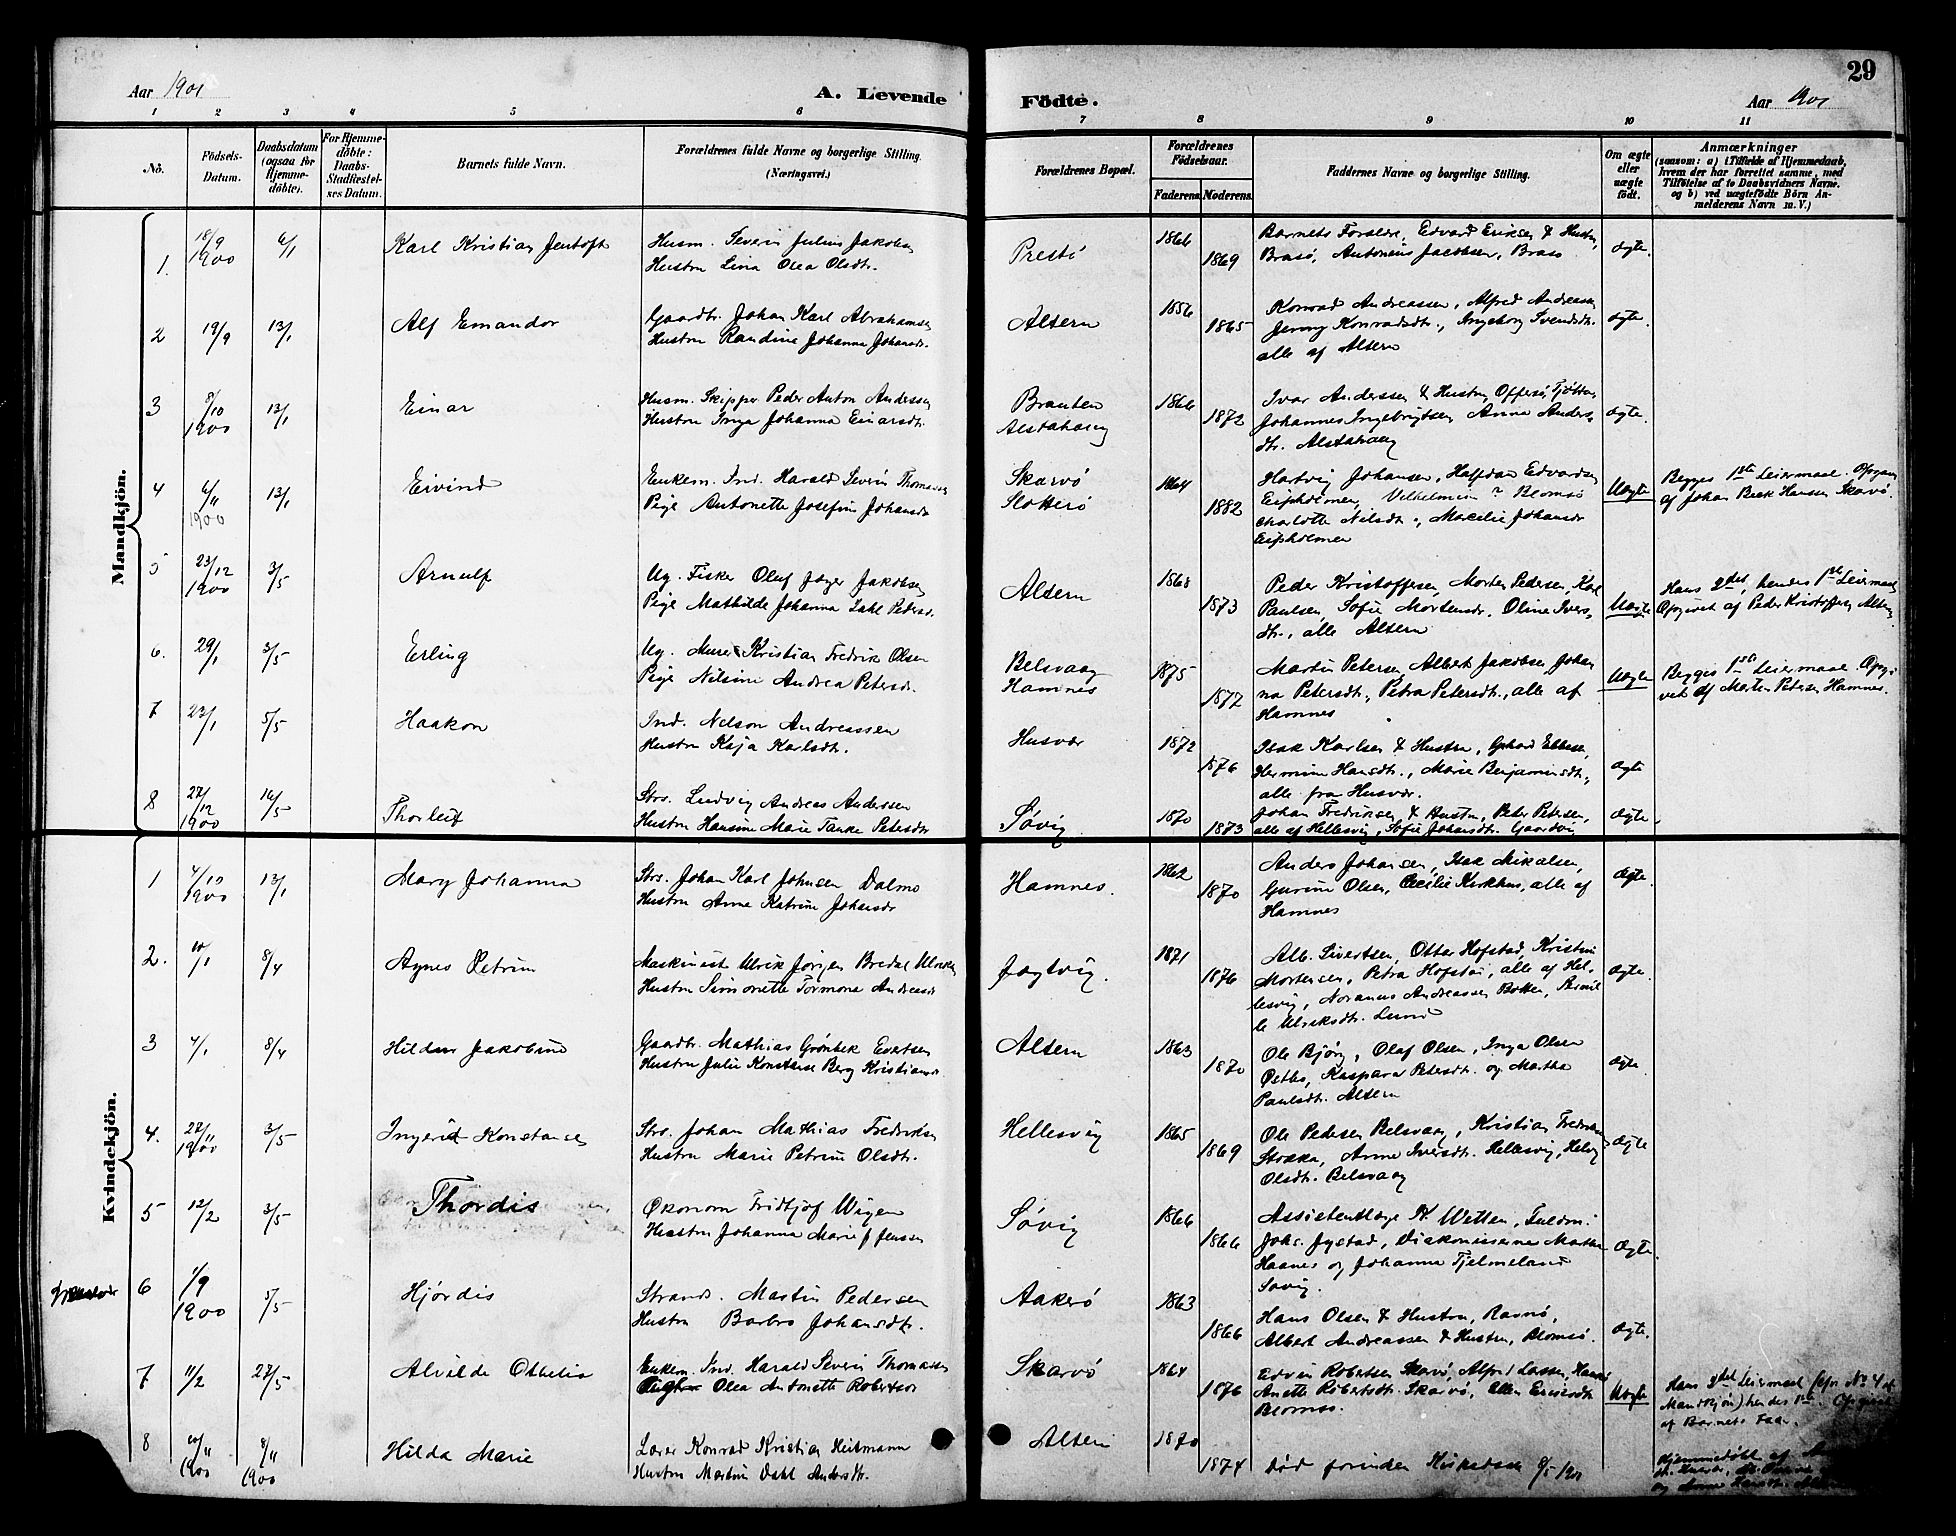 Aar 1901
A. Levende
Födte.
Aar 1901
29
1 2 3 4 5 6 7 8 9 10 11
No.
Födsels-
Datum.
Daabsdatum
(ogsaa for
Hjemme-
döbte).
For Hjemme-
döbte:
Daabs-
Stadfæstel-
ses Datum.
Barnets fulde Navn.
Forældrenes fulde Navne og borgerlige Stilling.
(Næringsvei.)
Forældrenes Bopæl.
Forældrenes
Födselsaar.
Faderens.
Moderens.
Faddernes Navne og borgerlige Stilling.
Om ægte
eller
uægte
födt.
Anmærkninger
(saasom: a) i Tilfælde af Hjemmedaab,
hvem der har forrettet samme, med
Tilföielse af to Daabsvidners Navne.
og b) ved uægtefödte Börn An-
melderens Navn m. V.)
Mandkjön.
1. 18/9 1900 6/1 Karl Kristian Jentoft
Husm. Severin Julius Jakobsen
Hustru Lina Olea Olsdtr.
Prestø 1866 1869
Barnets Forældre, Edvard Eriksen & Hustru,
Brasø, Antonius Jacobsen, Brasø
ægte.
2 19/9 13/1 Alf Emandor
Gaardbr. Johan Karl Abrahamsen
Hustru Randine Johanna Johansdr.
Altern 1856 1865
Konrad Andreassen, Alfred Andreassen
Jenny Konradsdtr., Ingeborg Svendsdtr.
alle af Altern
ægte.
3 8/10 1900 13/1 Einar
Husm. Skipper Peder Anton Anderssen
Hustru Inga Johanna Einarsdtr.
Brauten
Alstahaug
1866 1872
Ivar Anderssen & Hustru, Offersø, Tjøtta,
Johannes Ingebrigtsen, Anna Anders-
dtr. Alstahaug
ægte.
4 6/11 1900 13/1 Eivind
Enkem. Ind. Harald Severin Thomassen
Pige Antonette Josefine Johansdr
Skarvø
Slotterø
1864 1882
Hartvig Johansen, Halfdan Edvardsen
Eripholmen, Vilhelmine ? Blomsø
Charlotte Nilsdtr., Marcelie Johansdr
Eripholmen
Uægte
Begges 1ste Leiermaal. Opgivet
af Johan Beck Hansen Skarvø.
5 23/12 1900 3/5 Arnulf
Ug. Fisker Oluf Jøger Jakobsen
Pige Mathilde Johanna Dahl Pedersdr.
Altern 1868 1873
Peder Kristoffersen, Morten Pedersen, Karl
Paulsen, Sofie Mortensdr., Oline Ivers-
dtr., alle Altern
Uægte
Hans 2det, hendes 1ste Leiermaal
Opgivet af Peder Kristoffersen Altern
6. 29/1 3/5 Erling
Ug. Murer Kristian Fredrik Olsen
Pige Nilsine Andrea Petersdr.
Belsvaag
Hamnes
1875 1872
Martin Petersen, Albert Jakobsen, Johan-
na Petersdtr., Petra Petersdtr., alle af
Hamnes
Uægte
Begges 1ste Leiermaal. Opgi-
vet af Morten Petersen Hamnes.
7 23/1 5/5 Haakon
Ind. Nelson Andreassen
Hustru Kaja Karlsdtr.
Husvær 1872 1876
Isak Karlsen & Hustru, Gerhard Ebbesen,
Hermine Hansdtr., Marie Benjaminsdtr.,
alle fra Husvær.
ægte
8 22/12 1900 16/5 Thorleif
Strs. Ludvig Andreas Anderssen
Hustru Hansine Marie Tanke Petersdtr
Søvig 1870 1873
Johan Fredriksen & Hustru, Peter Petersen,
alle af Hellesvig, Sofie Johansdtr. Gaardvig
ægte.
Kvindekjön.
1 4/10 1900 13/1 Mary Johanna
Strs. Johan Karl Johnsen Dalmo
Hustru Anna Katrine Johansdr
Hamnes. 1862 1870
Anders Johansen, Isak Mikalsen,
Gurine Olsen, Cecilie Kirkhus, alle af
Hamnes
ægte.
2. 10/1 8/4 Agnes Petrine
Maskinist Ulrik Jørgen Bredal Ulriksen
Hustru Simonette Tormona Andreasdr
Jagtvig. 1871 1876
Alb. Sivertsen, Otter Hofstad, Kristine
Mortensen, Petra Hofstad, alle af Hel-
lesvig, Noranus Andreassen Botten, Pernil-
le Ulriksdtr. Lund
ægte.
3 4/1 8/4 Hilda Jakobine
Gaardbr. Mathias Grønbek Evertsen
Hustru Julie Konstanse Berg Kristiansdr
Altern 1863 1870
Ole Bjørg, Olaf Olsen, Inga Olsen
Østbø, Kaspara Petersdtr. og Martha
Paulsdtr. Altern
ægte
4. 22/11 1900 3/5 Ingerid Konstanse
Strs. Johan Mathias Fredriksen
Hustru Marie Petrine Olsdtr.
Hellesvig 1865 1869
Ole Pedersen Belsvaag, Kristian Fredriksen
Stokka, Anne Iversdtr. Hellesvig, Helvig
Olsdtr. Belsvaag
ægte
5 12/2 3/5 Thordis
Økonom Fridtjof Wigen
Hustru Johanna Marie f Jenssen
Søvig 1866 1866
Assistentlæge K. Wetten, Fuldm.
Johs. Jystad, Diakonisserne Martha
Haanes og Johanna Fjelmeland
Søvig.
ægte.
6 1/9 1900 5/5 Hjørdis
Strands. Martin Pedersen
Hustru Barbro Johansdtr.
Aakerø 1863 1866
Hans Olsen & Hustru, Ravnø,
Albert Andreassen & Hustru, Blomsø.
ægte.
7 11/2 28/5 Alvilde Othelia
Enkem. Ind. Harald Severin Thomassen
Olea Antonette Robertsdr
Skarvø 1864 1876
Edvin Robertsen Skarvø, Alfred Lassen,
Anette Robertsdtr. Skarvø, Ellen Eriksdtr.
Blomsø.
Uægte
Hans 3det Leiermaal (cfr No 4 af
Mandkjön) hendes 1ste. Opgivet
af Barnets Far.
8 10/11 1900 8/11 1900 Hilda Marie
Lærer Konrad Kristian Heitmann
Hustru Martine Dahl Andersdtr.
Altern 1870 1874
Død forinden Kirkedaab 9/5 1901
Hjemmedøbt af